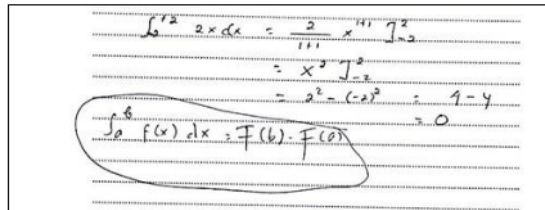 ∫₋₂⁺² 2x dx = 2/(1+1) x¹⁺¹ ]₋₂²
= x² ]₋₂²
= 2² - (-2)² = 4 - 4
= 0
∫ₐᵇ f(x) dx = F(b) - F(a)